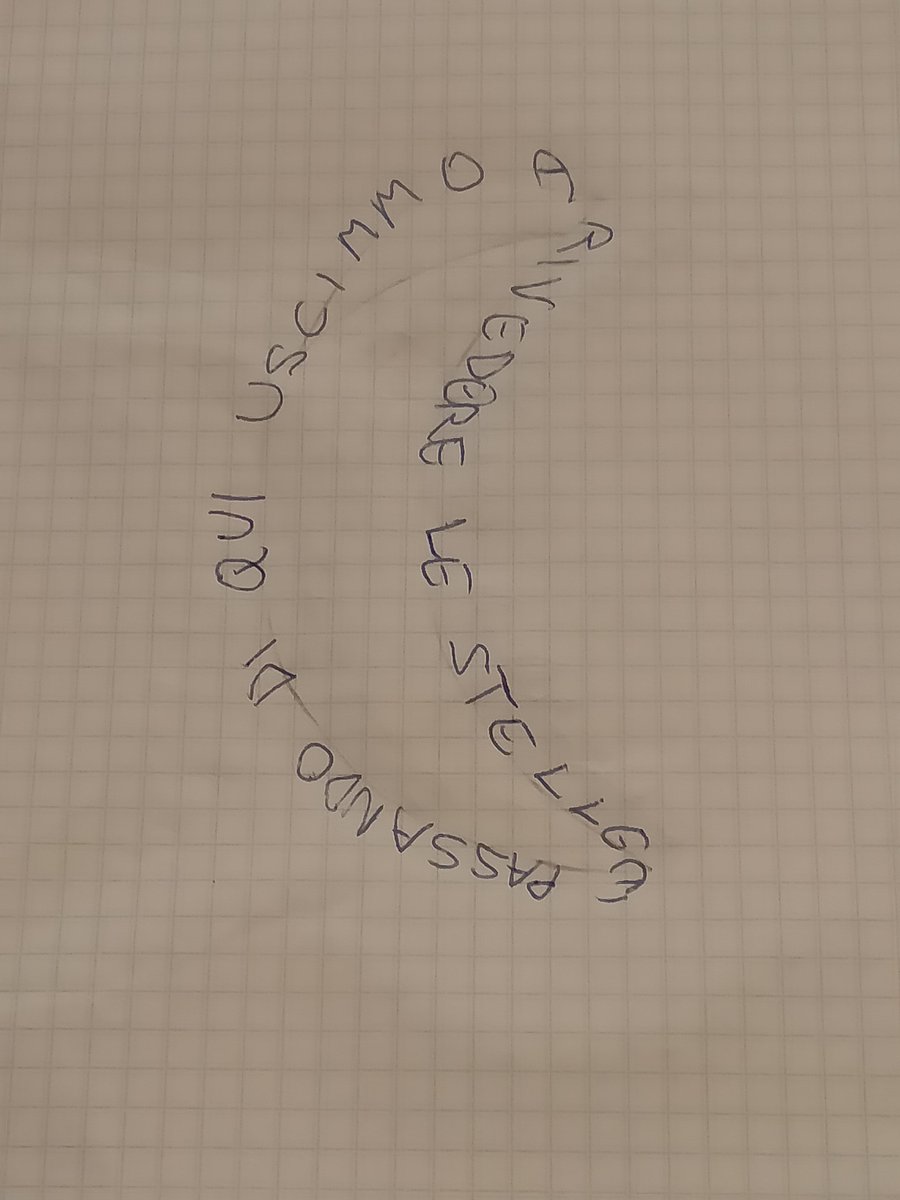 E PASSANDO DI QUI USCIMMO
A RIVEDERE LE STELLE